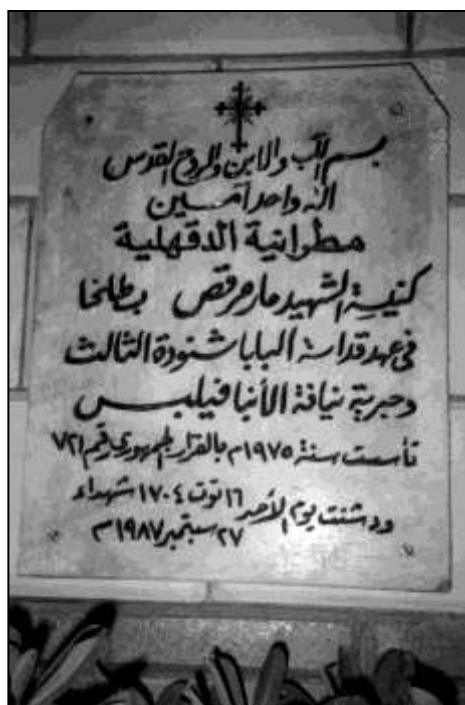 بسم الآب والابن والروح القدس
اله واحد آمــين
مطرانية الدقهلية
كنيسة الشهيد مارمرقص بطلخا
فى عهد قداسة البابا شنودة الثالث
وحبرية نيافة الأنبا فيلبس
تأسست سنة ١٩٧٥م بالقرار الجمهورى رقم ٧٢١
ودشنت يوم الأحد ١٦ توت ١٧٠٤ شهداء
٢٧ سبتمبر ١٩٨٧م